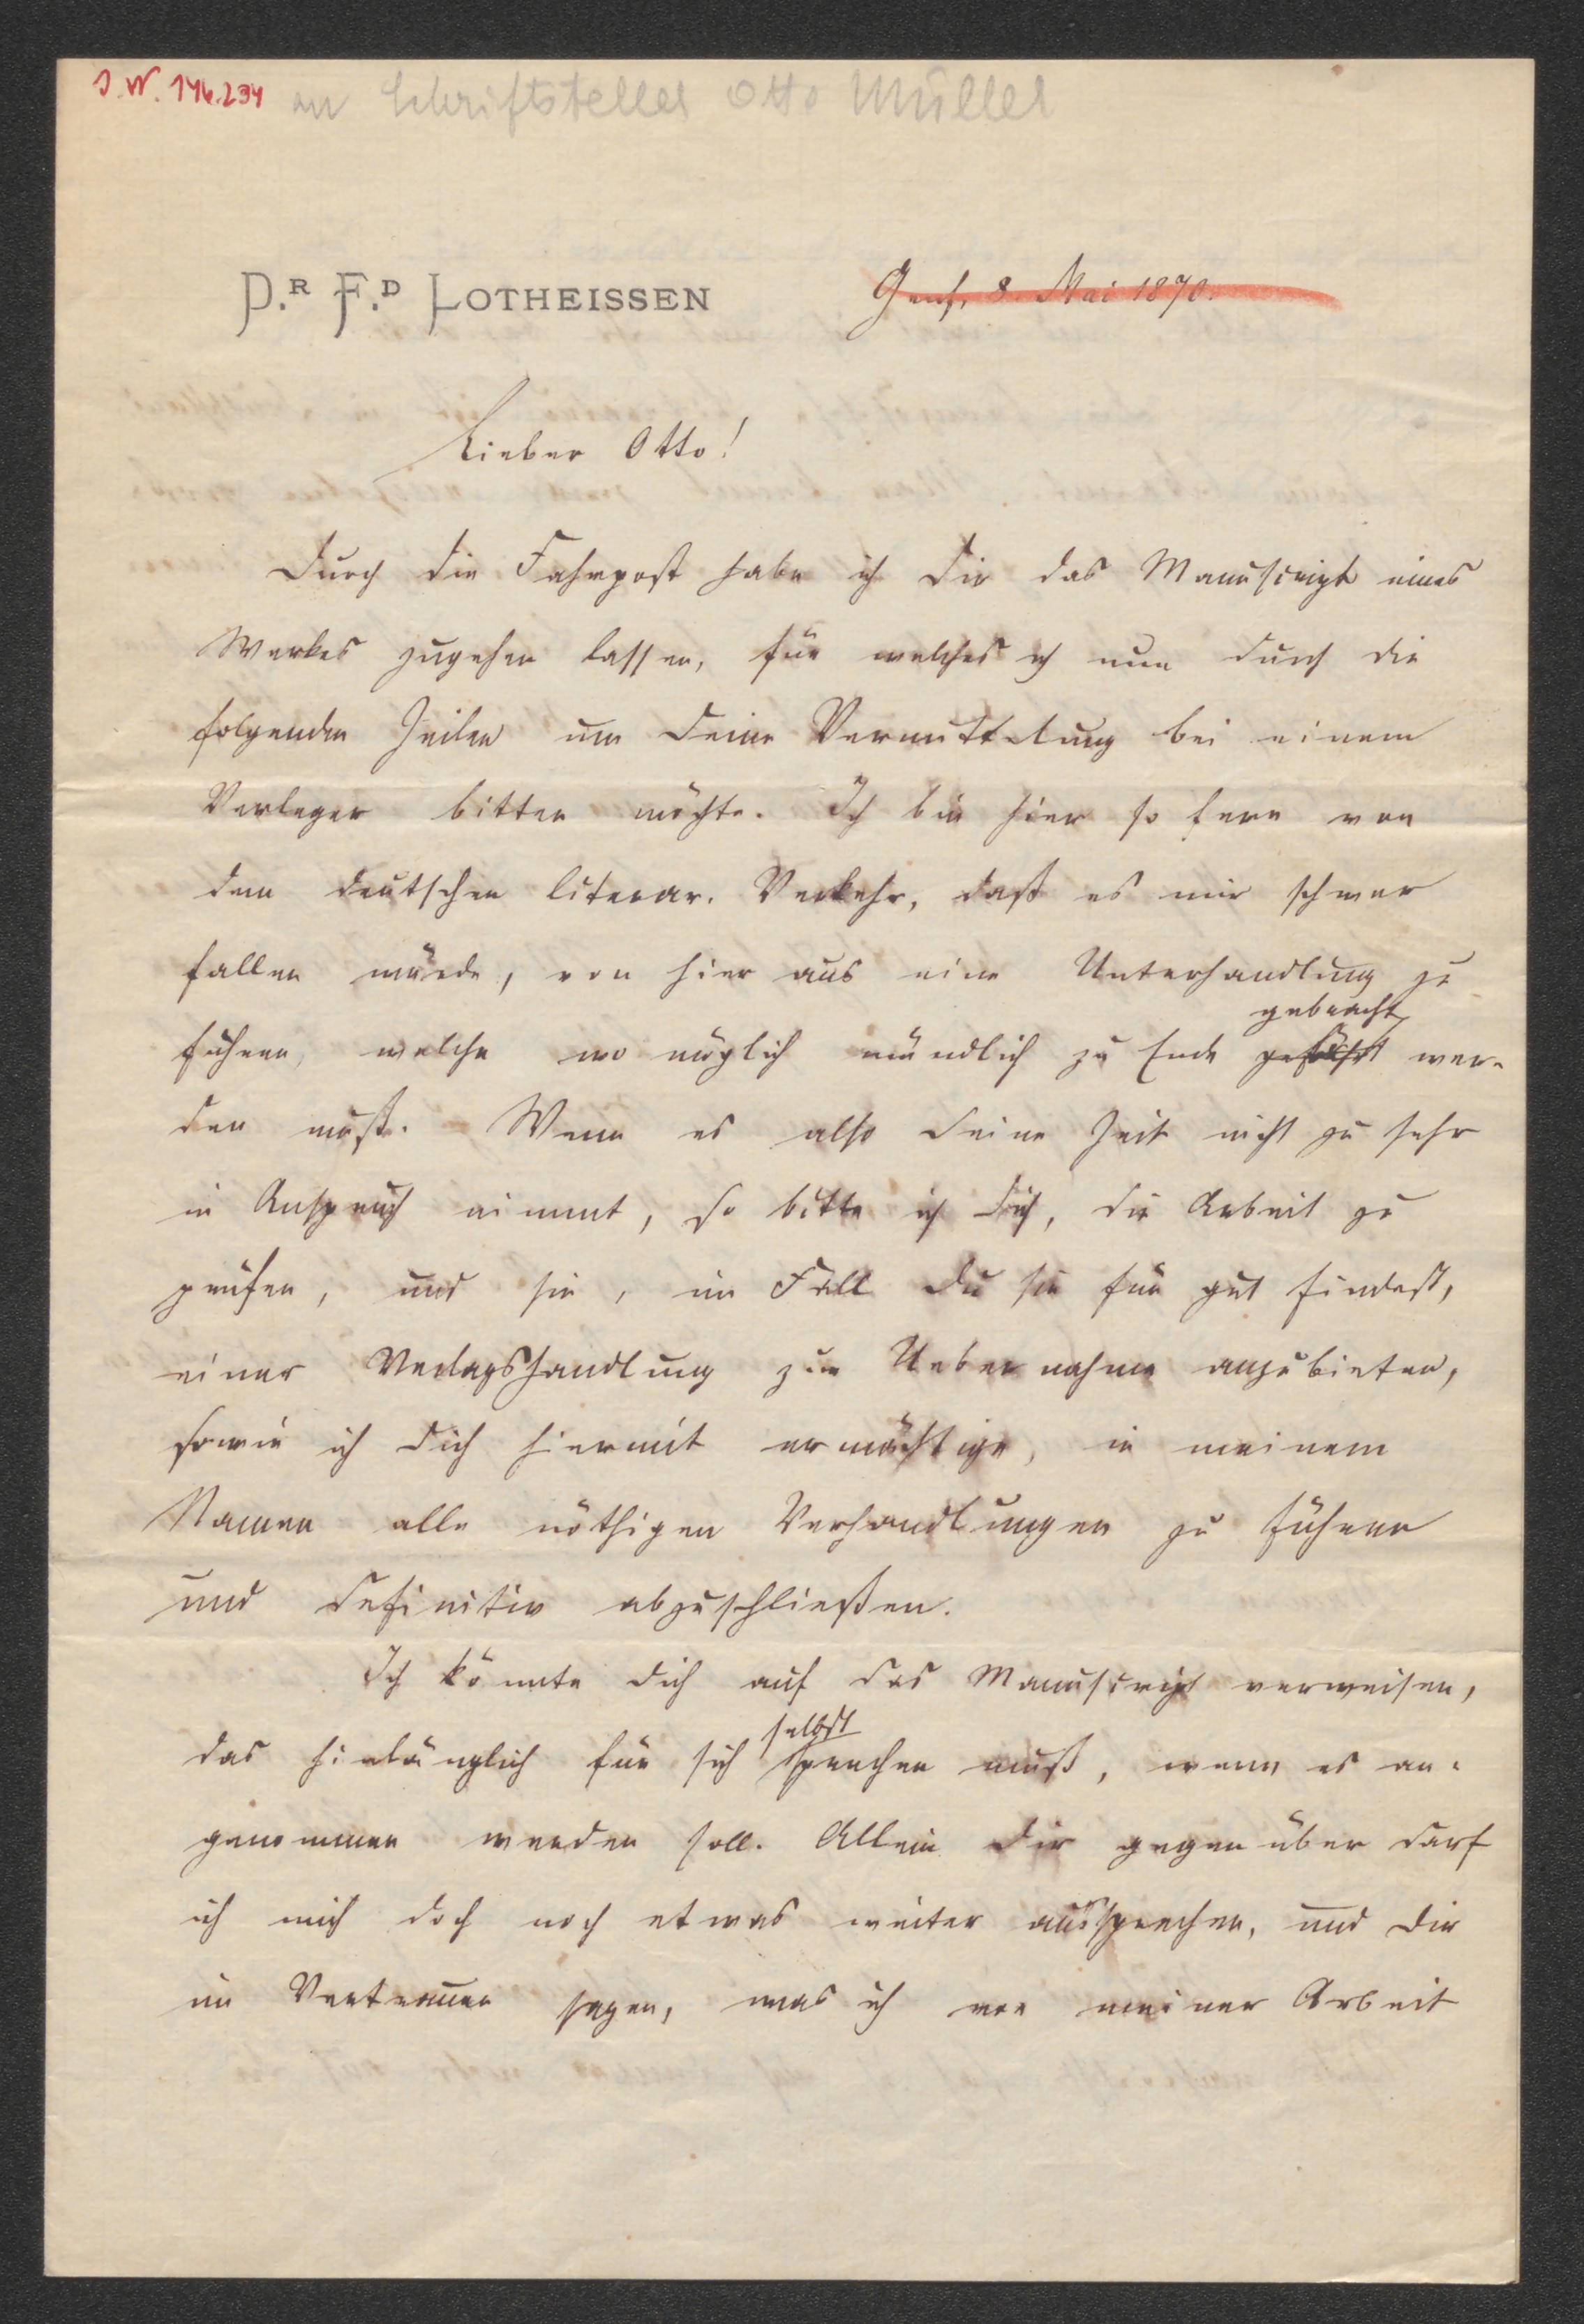 J.N. 146.234
an Schriftsteller Otto Müller
Dr. Fd. LOTHEISSEN
Genf, 8. Mai 1870.
Lieber Otto!
Durch die Fahrpost habe ich Dir das Manuscript eines
Werkes zugehen lassen, für welches ich nun durch die
folgenden Zeilen um Deine Vermittelung bei einem
Verleger bitten möchte. Ich bin hier so fern von
dem deutschen literar. Verkehr, daß es mir schwer
fallen würde, von hier aus eine Unterhandlung zu
gebracht
führen, welche wo möglich mündlich zu Ende geführt wer-
den muß. Wenn es also Deine Zeit nicht zu sehr
in Anspruch nimmt, so bitte ich Dich, die Arbeit zu
prüfen, und sie, im Fall Du sie für gut findest,
einer Verlagshandlung zur Uebernahme anzubieten,
sowie ich Dich hiermit ermächtige, in meinem
Namen alle nöthigen Verhandlungen zu führen
und definitiv abzuschließen.
Ich könnte Dich auf das Manuscript verweisen,
selbst
das hinlänglich für sich sprechen muß, wenn es an-
genommen werden soll. Allein Dir gegenüber darf
ich mich doch noch etwas weiter aussprechen, und Dir
im Vertrauen sagen, was ich von meiner Arbeit